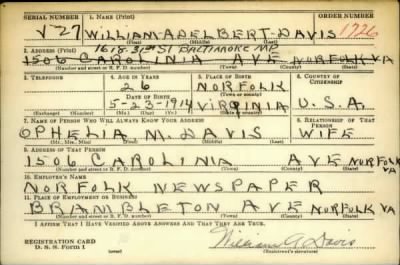 SERIAL NUMBER 1. NAME (Print) ORDER NUMBER
V-27 WILLIAM ADELBERT DAVIS 1726
(First) (Middle) (Last)
2. ADDRESS (Print) 1618 31st ST BALTIMORE MD
1506 CAROLINIA AVE NORFOLK VA
(Number and street or R. F. D. number) (Town) (County) (State)
3. TELEPHONE 4. AGE IN YEARS 5. PLACE OF BIRTH 6. COUNTRY OF CITIZENSHIP
26 NORFOLK
DATE OF BIRTH (Town or county)
5-23-1914 VIRGINIA U.S.A.
(Exchange) (Number) (Mo.) (Day) (Yr.) (State or country)
7. NAME OF PERSON WHO WILL ALWAYS KNOW YOUR ADDRESS 8. RELATIONSHIP OF THAT PERSON
OPHELIA M. DAVIS WIFE
(Mr., Mrs., Miss) (First) (Middle) (Last)
9. ADDRESS OF THAT PERSON
1506 CAROLINIA AVE NORFOLK VA
(Number and street or R. F. D. number) (Town) (County) (State)
10. EMPLOYER'S NAME
NORFOLK NEWSPAPER
11. PLACE OF EMPLOYMENT OR BUSINESS
BRAMBLETON AVE NORFOLK VA
(Number and street or R. F. D. number) (Town) (County) (State)
I AFFIRM THAT I HAVE VERIFIED ABOVE ANSWERS AND THAT THEY ARE TRUE.
REGISTRATION CARD
D. S. S. Form 1 William A. Davis
(Registrant's signature)